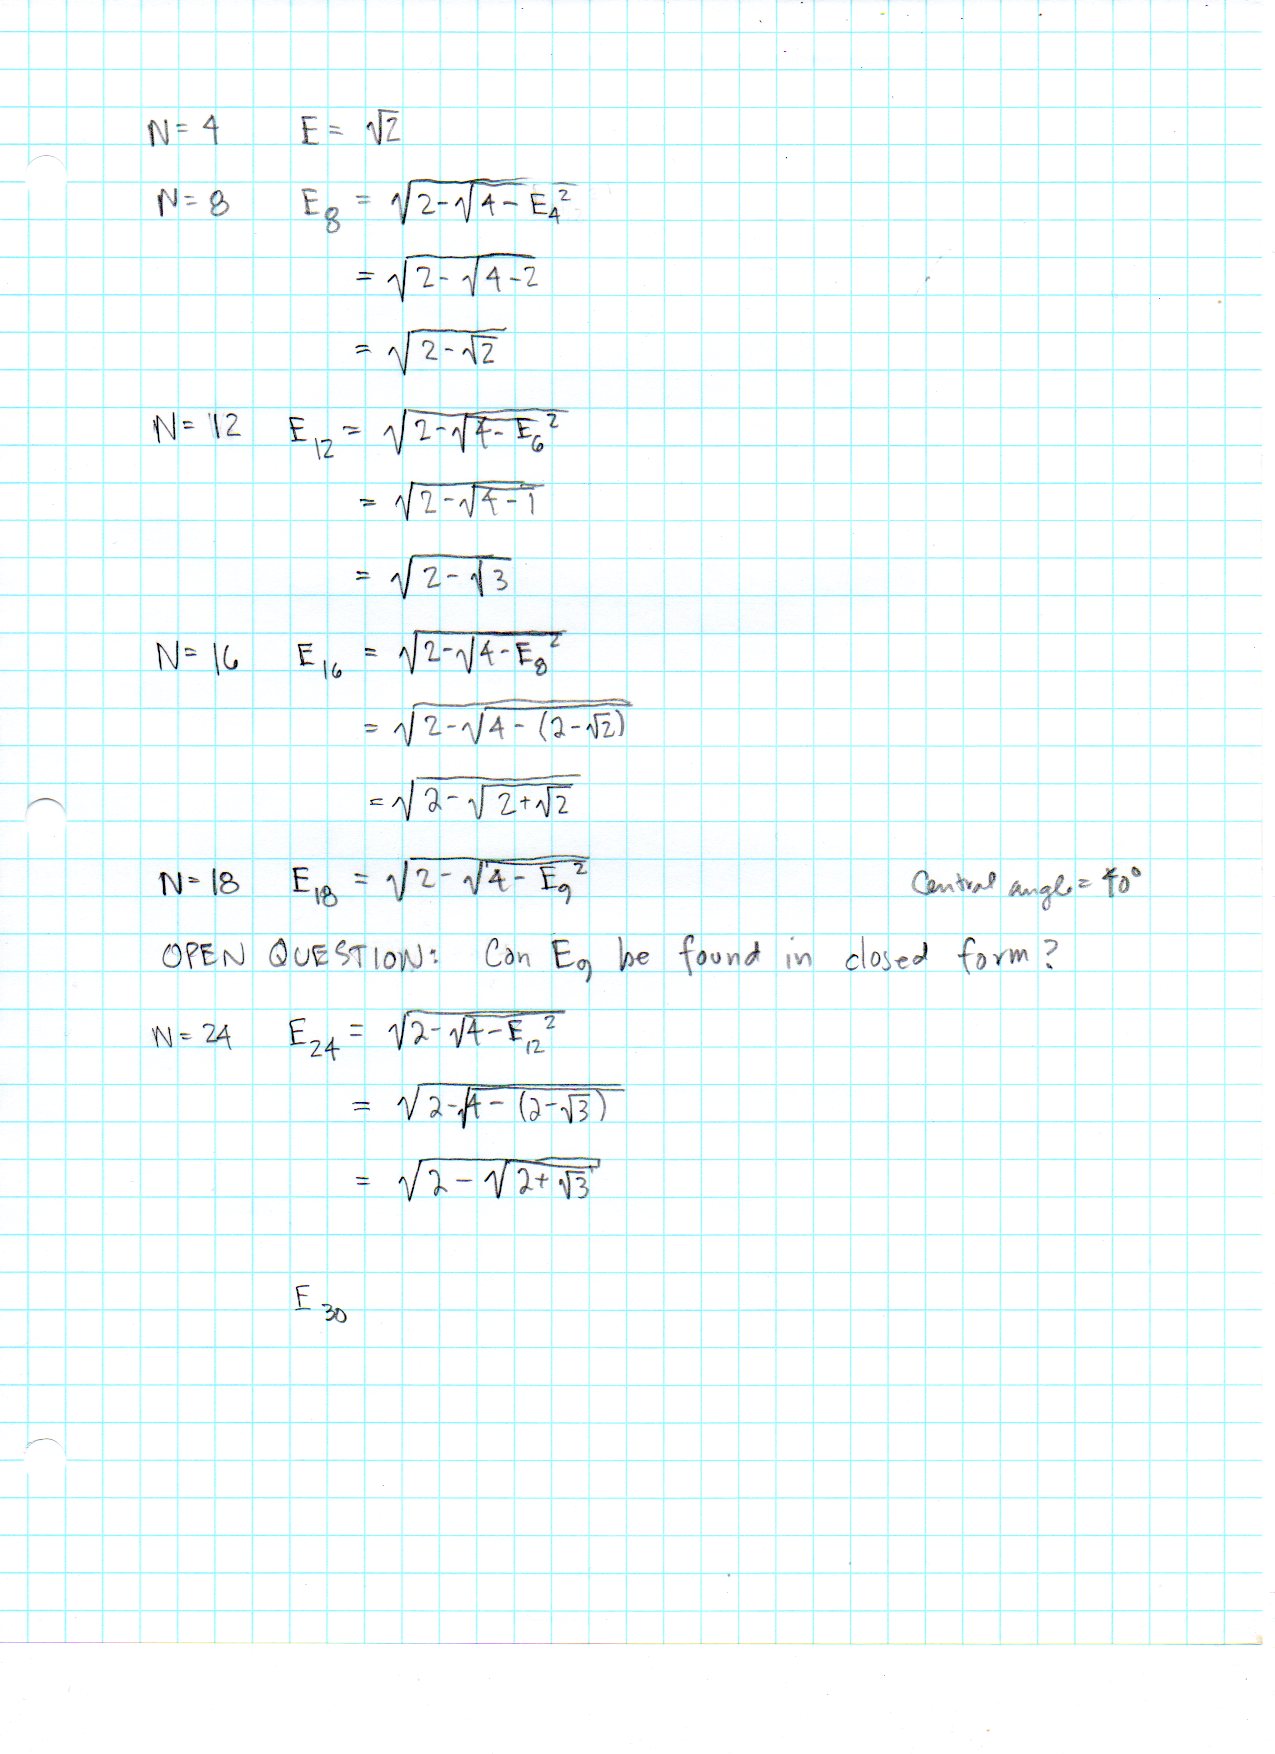 N= 4 E= √2
N= 8 E₈ = √(2-√(4-E₄²))
= √(2-√(4-2))
= √(2-√2)
N= 12 E₁₂ = √(2-√(4-E₆²))
= √(2-√(4-1))
= √(2-√3)
N= 16 E₁₆ = √(2-√(4-E₈²))
= √(2-√(4-(2-√2)))
= √(2-√(2+√2))
N= 18 E₁₈ = √(2-√(4-E₉²)) Central angle = 40°
OPEN QUESTION: Can E₉ be found in closed form?
N= 24 E₂₄ = √(2-√(4-E₁₂²))
= √(2-√(4-(2-√3)))
= √(2-√(2+√3))
E₃₀